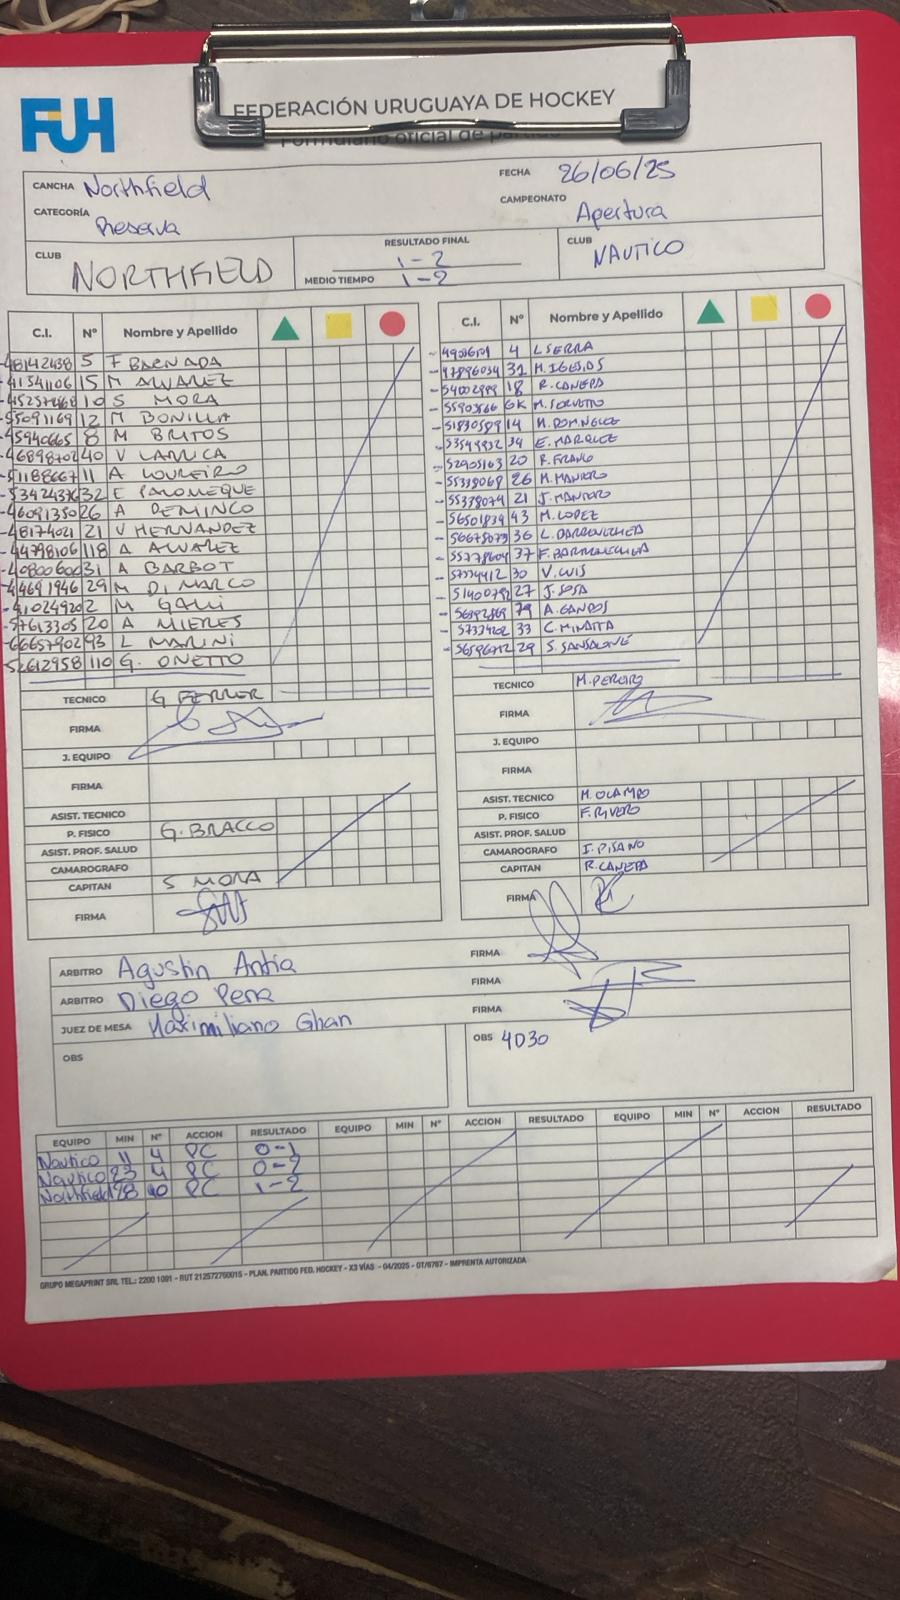 FUH
FEDERACIÓN URUGUAYA DE HOCKEY
Formulario oficial de partido
CANCHA Northfield
FECHA 26/06/25
CATEGORÍA Reserva
CAMPEONATO Apertura
CLUB NORTHFIELD
RESULTADO FINAL 1-2
MEDIO TIEMPO 1-2
CLUB NAUTICO
C.I. Nº Nombre y Apellido
48142438 5 F BARNADA
41541106 15 M ALVAREZ
10 S MORA
55091169 12 M BONILLA
45940665 8 M BRITOS
46898702 40 V LARRICA
51188667 11 A LOUREIRO
32 E PALOMEQUE
46091350 26 A DEMINCO
48174021 21 V HERNANDEZ
44798106 118 A ALVAREZ
40800600 31 A BARBOT
44691946 29 M DI MARCO
41024920 2 M GALLI
57613305 20 A MIERES
66657902 93 L MARINI
52612958 110 G. ONETTO
TECNICO G FERRER
FIRMA
J. EQUIPO
FIRMA
ASIST. TECNICO
P. FISICO G. BRACCO
ASIST. PROF. SALUD
CAMAROGRAFO
CAPITAN S MORA
FIRMA
C.I. Nº Nombre y Apellido
4 L SERRA
47896034 32 M. IGLESIAS
54002999 18 R. CANEPA
GK M. SORVETTO
51830589 14 M. DOMINGUEZ
34 E. MARQUEZ
52905163 20 R. FRANO
55338068 26 M. MANEIRO
55338074 21 J. MANEIRO
56501834 43 M. LOPEZ
36 L. DARRONCHEDA
37 F.
30 V. LUIS
27 J. SOSA
79 A. GANDOS
33 C. MINAITA
29 S. SANSALONE
TECNICO M. PEREIRO
FIRMA
J. EQUIPO
FIRMA
ASIST. TECNICO M. OCAMPO
P. FISICO F. RIVERO
ASIST. PROF. SALUD
CAMAROGRAFO I. PISANO
CAPITAN R. CANEPA
FIRMA
ARBITRO Agustin Antia FIRMA
ARBITRO Diego Pena FIRMA
JUEZ DE MESA Maximiliano Ghan FIRMA
OBS
OBS 4030
EQUIPO MIN Nº ACCION RESULTADO EQUIPO MIN Nº ACCION RESULTADO EQUIPO MIN Nº ACCION RESULTADO
Nautico 11 4 PC 0-1
Nautico 23 4 PC 0-2
Northfield 28 10 PC 1-2
GRUPO MEGAPRINT SRL TEL.: 2200 1091 - RUT 212572760015 - PLAN. PARTIDO FED. HOCKEY - X3 VÍAS - 04/2025 - OT/6767 - IMPRENTA AUTORIZADA